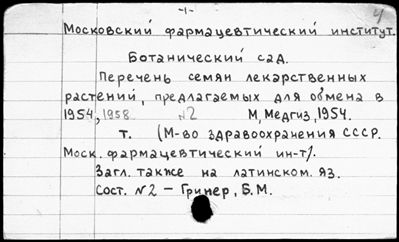 -1-
4
Московский фармацевтический институт.
Ботанический сад.
Перечень семян лекарственных
растений, предлагаемых для обмена в
1954, 1958. №2 М, Медгиз, 1954.
т. (М-во здравоохранения СССР.
Моск. фармацевтический ин-т).
Загл. также на латинском яз.
Сост. №2 – Гринер, Б.М.